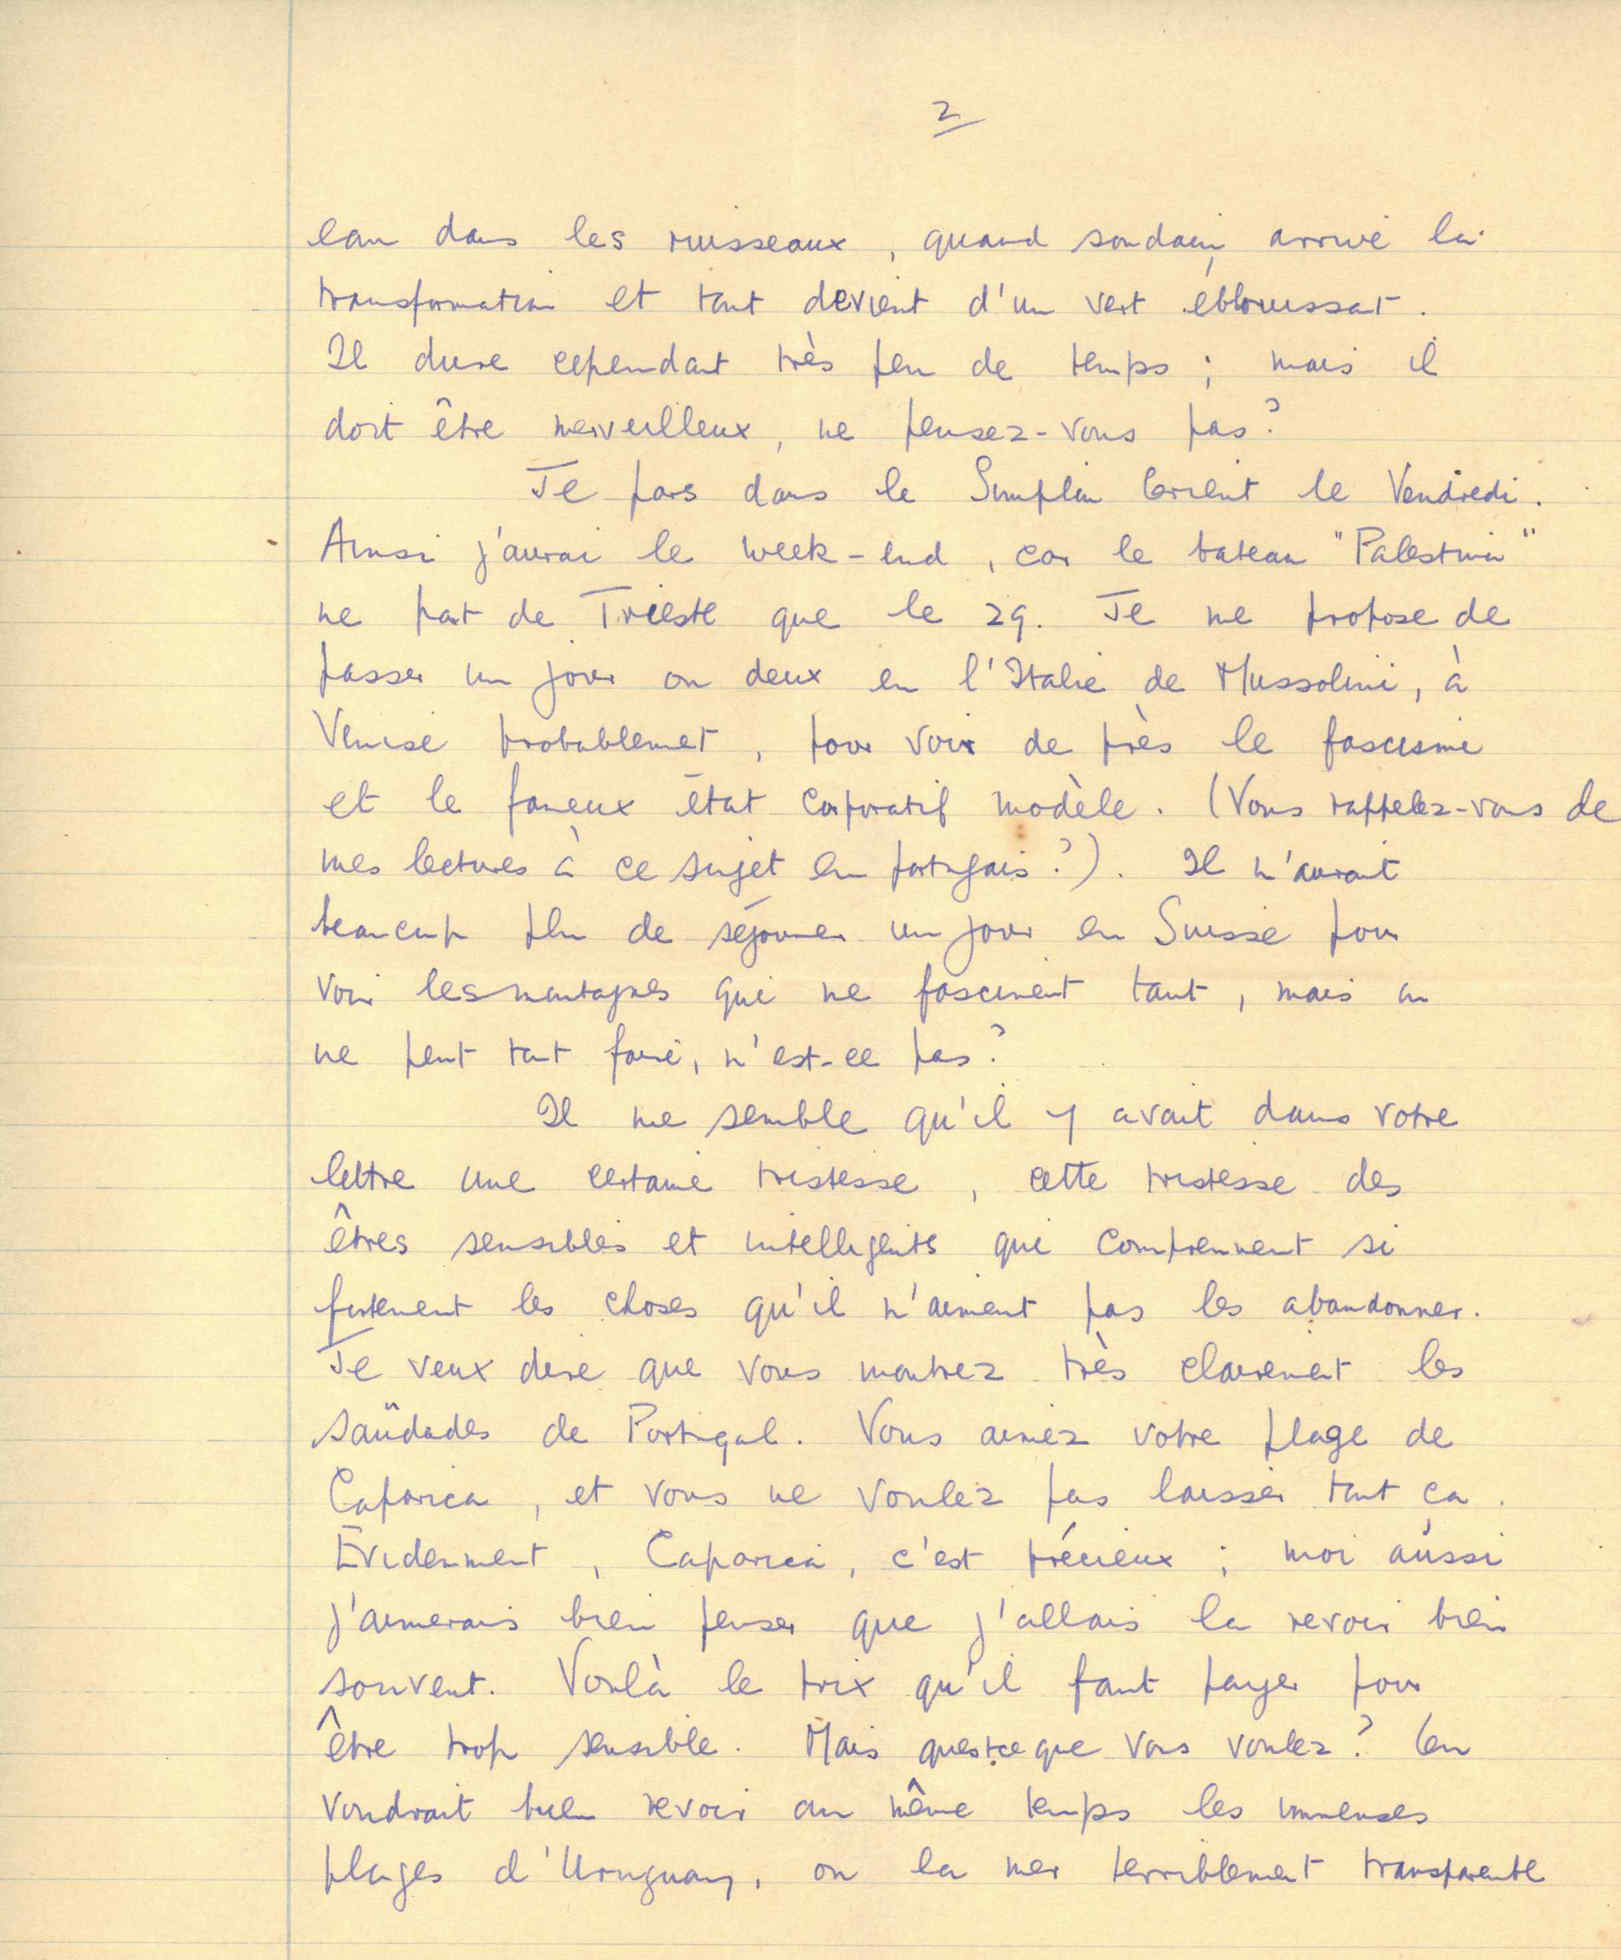 2
eau dans les ruisseaux, quand soudain arrive la
transformation et tout devient d'un vert éblouissat.
Il dure cependant très peu de temps; mais il
doit être merveilleux, ne pensez-vous pas?
Je pars dans le Simplon Orient le Vendredi.
Ainsi j'aurai le week-end, car le bateau "Palestina"
ne part de Trieste que le 29. Je me propose de
passer un jour ou deux en l'Italie de Mussolini, à
Venise probablemet, pour voir de près le fascisme
et le fameux état corporatif modèle. (Vous rappelez-vous de
mes lectures à ce sujet en portugais?). Il m'aurait
beaucoup plu de séjourner un jour en Suisse pour
voir les montagnes qui me fascinent tant, mais on
ne peut tout faire, n'est-ce pas?
Il me semble qu'il y avait dans votre
lettre une certaine tristesse, cette tristesse des
êtres sensibles et intelligents qui comprennent si
fortement les choses qu'il n'aiment pas les abandonner.
Je veux dire que vous montrez très clairement les
saüdades de Portugal. Vous aimez votre plage de
Caparica, et vous ne voulez pas laisser tout ça.
Evidemment, Caparica, c'est précieux; moi aussi
j'aimerais bien penser que j'allais la revoir bien
souvent. Voilà le prix qu'il faut payer pour
être trop sensible. Mais questce que vous voulez? On
voudrait bien revoir au même temps les immenses
plages d'Uruguay, ou la mer terriblement transparente